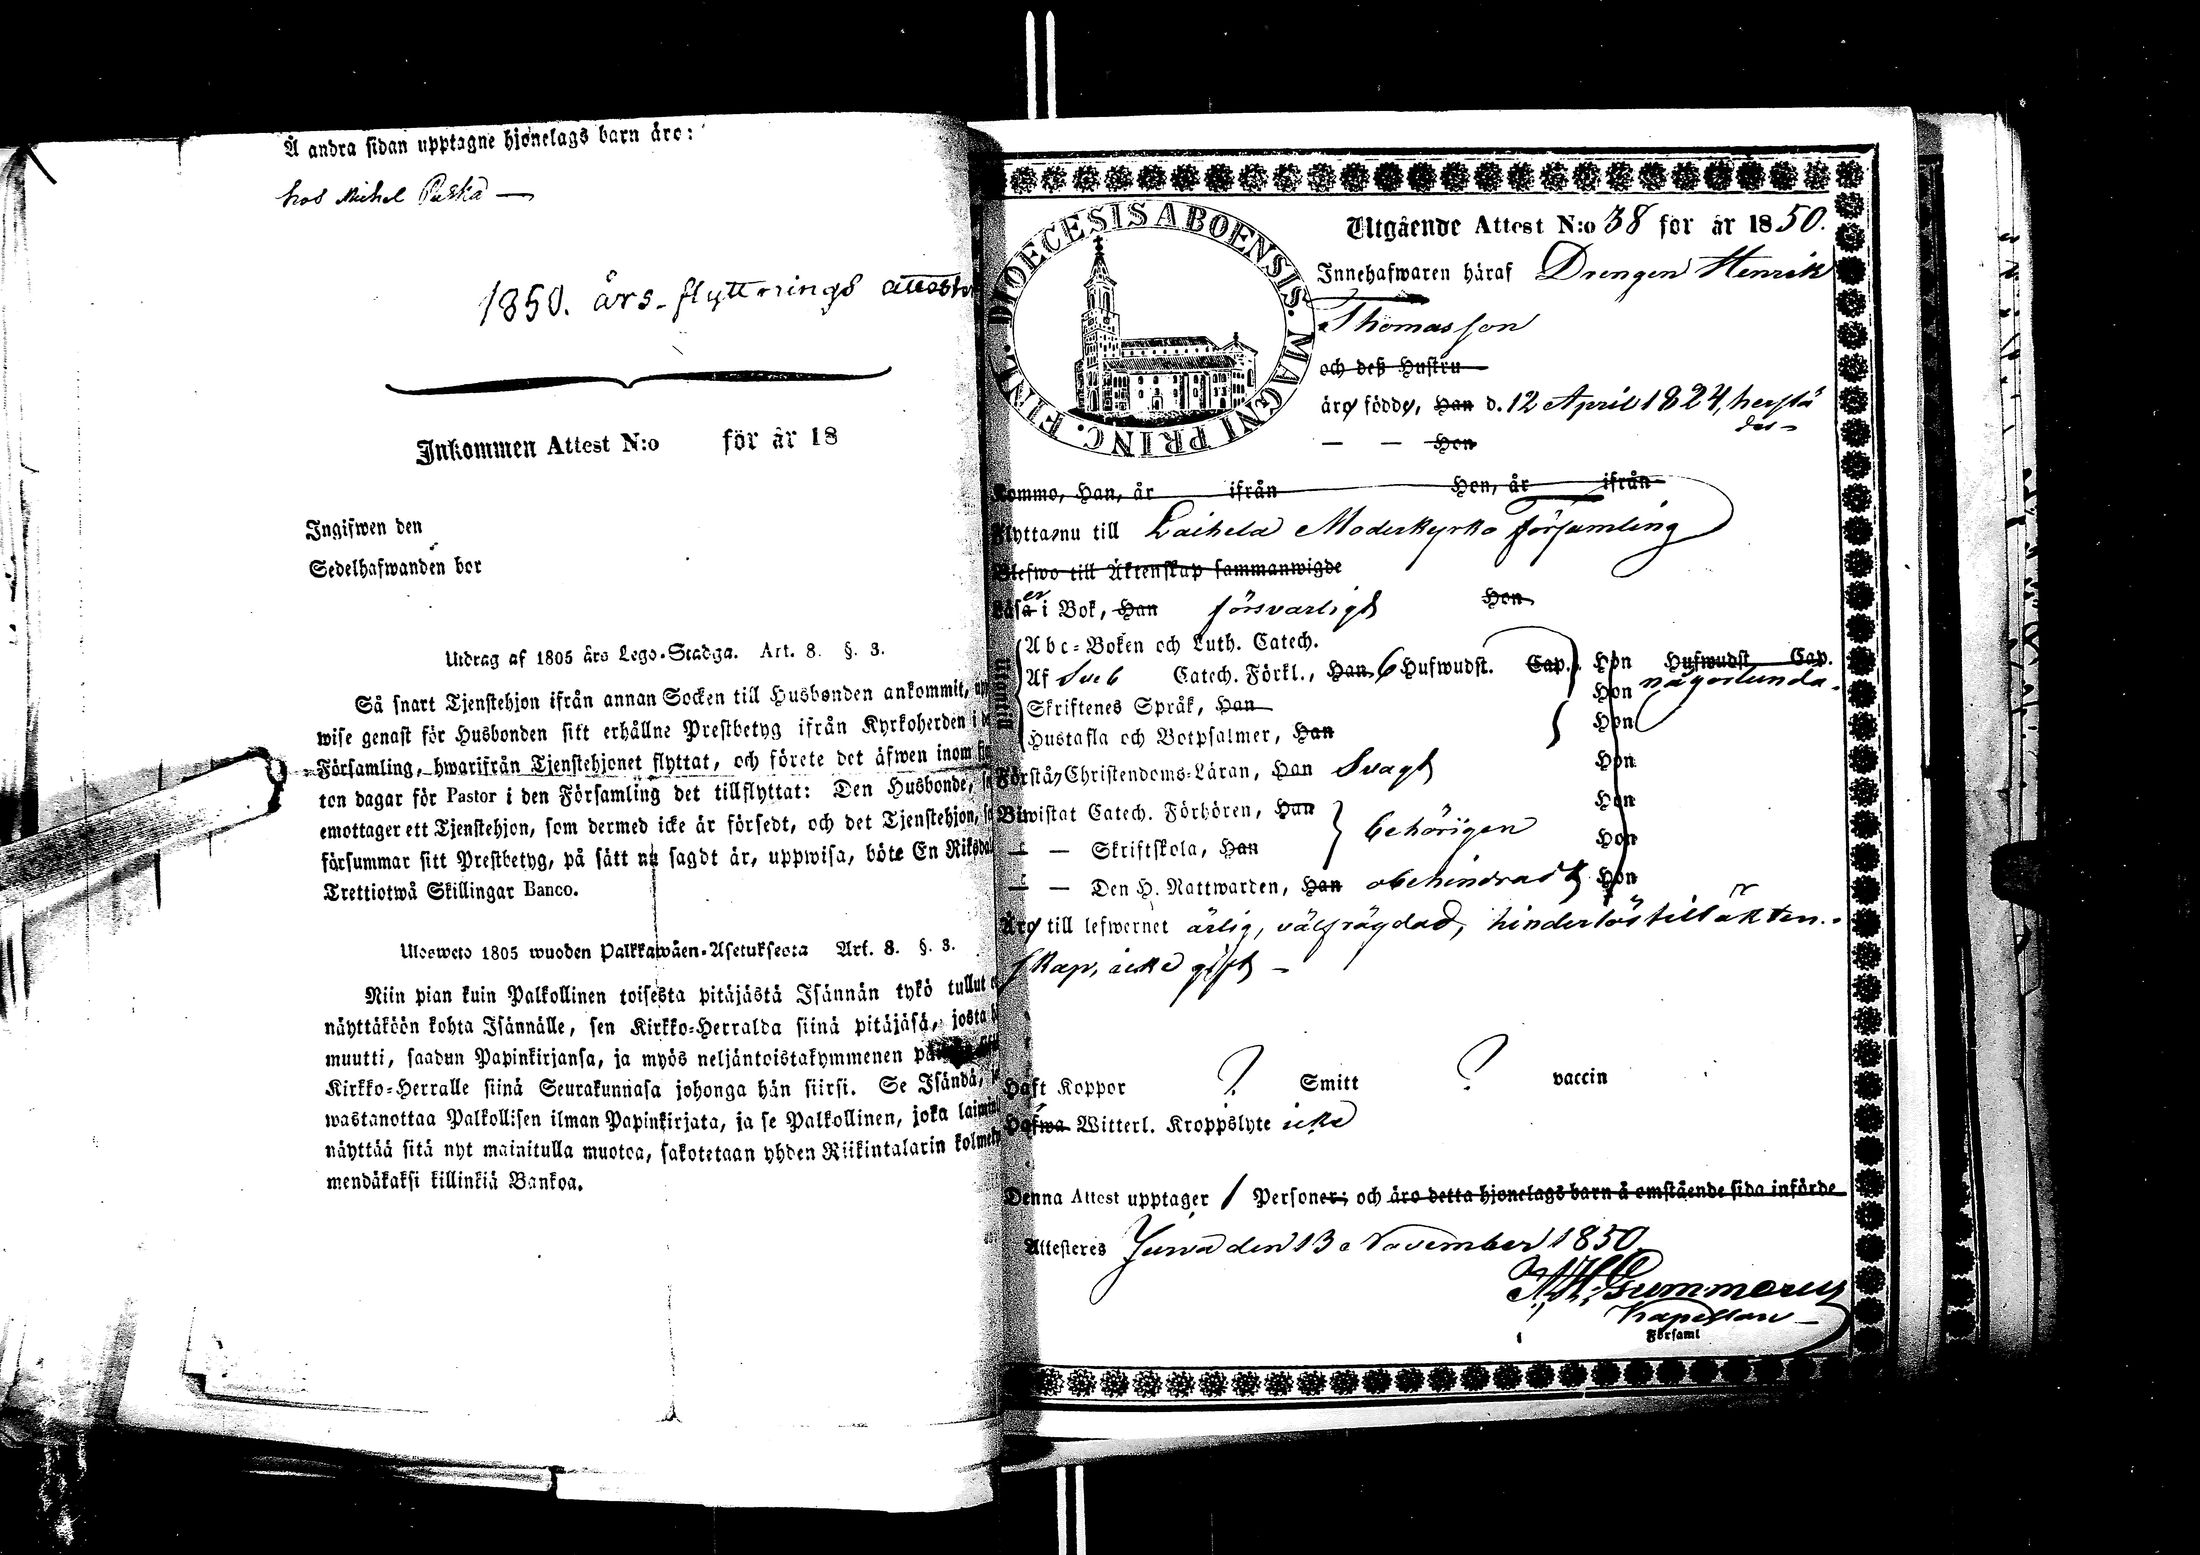 Å andra sidan upptagne hjonelags barn äro:
hos Michel
1850. års flyttnings attester
Inkommen Attest N:o för år 18
Ingifwen den
Sedelhafwanden bor
Utdrag af 1805 års Lego-Stadga. Art. 8. §. 3.
Så snart Tjenstehjon ifrån annan Socken till Husbonden ankommit,
wise genast för Husbonden sitt erhållne Prestbetyg ifrån Kyrkoherden i
Församling, hwarifrån Tjenstehjonet flyttat, och förete det äfwen inom
ton dagar för Pastor i den Församling det tillflyttat: Den Husbonde,
emottager ett Tjenstehjon, som dermed icke är försedt, och det Tjenstehjon,
försummar sitt Prestbetyg, på sätt nu sagdt är, uppwisa, böte En Riksdal
Trettiotwå Skillingar Banco.
Ulosweto 1805 wuoden Palkkawäen-Asetuksesta Art. 8. §. 3.
Niin pian kuin Palkollinen toisesta pitäjästä Isännän tykö tullut
näyttäköön kohta Isännälle, sen Kirkko-Herralda siinä pitäjäsä, josta
muutti, saadun Papinkirjansa, ja myös neljäntoistakymmenen
Kirkko-Herralle siinä Seurakunnasa johonga hän siirsi. Se Isändä,
wastanottaa Palkollisen ilman Papinkirjata, ja se Palkollinen, joka
näyttää sitä nyt mainitulla muotoa, sakotetaan yhden Riikintalarin kolme
mendäkaksi killinkiä Bankoa.
DIOECESIS ABOENSIS. MAGNI PRINC. FINL.
Utgående Attest N:o 38 för år 1850.
Innehafwaren häraf Drengen Henrik
Thomasson
och deß Hustru
äro födde, Han d. 12 April 1824, herstä
des
— — Hon
Komme, Han, år ifrån Hon, år ifrån
Flytta nu till Laihela Moderkyrko församling
Blefwo till Äktenskap sammanwigde
Läsa er i Bok, Han försvarligt Hon
Abc-Boken och Luth. Catech.
Af Sveb Catech. Förkl., Han 6 Hufwudst. Cap. Hon Hufwudst Cap.
Hon någorlunda.
Skriftenes Språk, Han Hon
Hustafla och Botpsalmer, Han
Förstå Christendoms-Läran, Han Svagt Hon
Biwistat Catech. Förhören, Han Hon
behörigen
— Skriftskola, Han Hon
— Den H. Nattwarden, Han obehindradt Hon
Äro till lefwernet ärlig, välfrägdad, hinderlös till äkten-
skap, icke gift —
Haft Koppor ? Smitt ? vaccin
Hafwa Witterl. Kroppslyte icke
Denna Attest upptager 1 Personer; och äro detta hjonelags barn å omstående sida införde
Attesteras Jurva den 13 November 1850
Gummerus
Kapellan
Församl